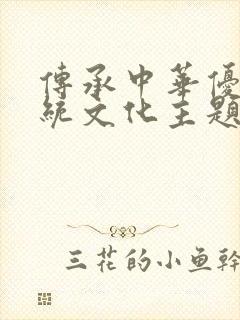 傳承中華優
統文化主題
三花的小鱼幹